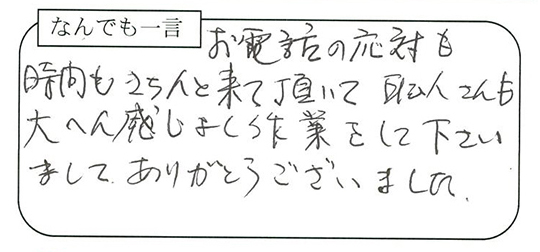 なんでも一言
お電話の応対も
時間もきちんと来て頂いて 職人さんも
大へん感じよく作業をして下さい
まして ありがとうございました。